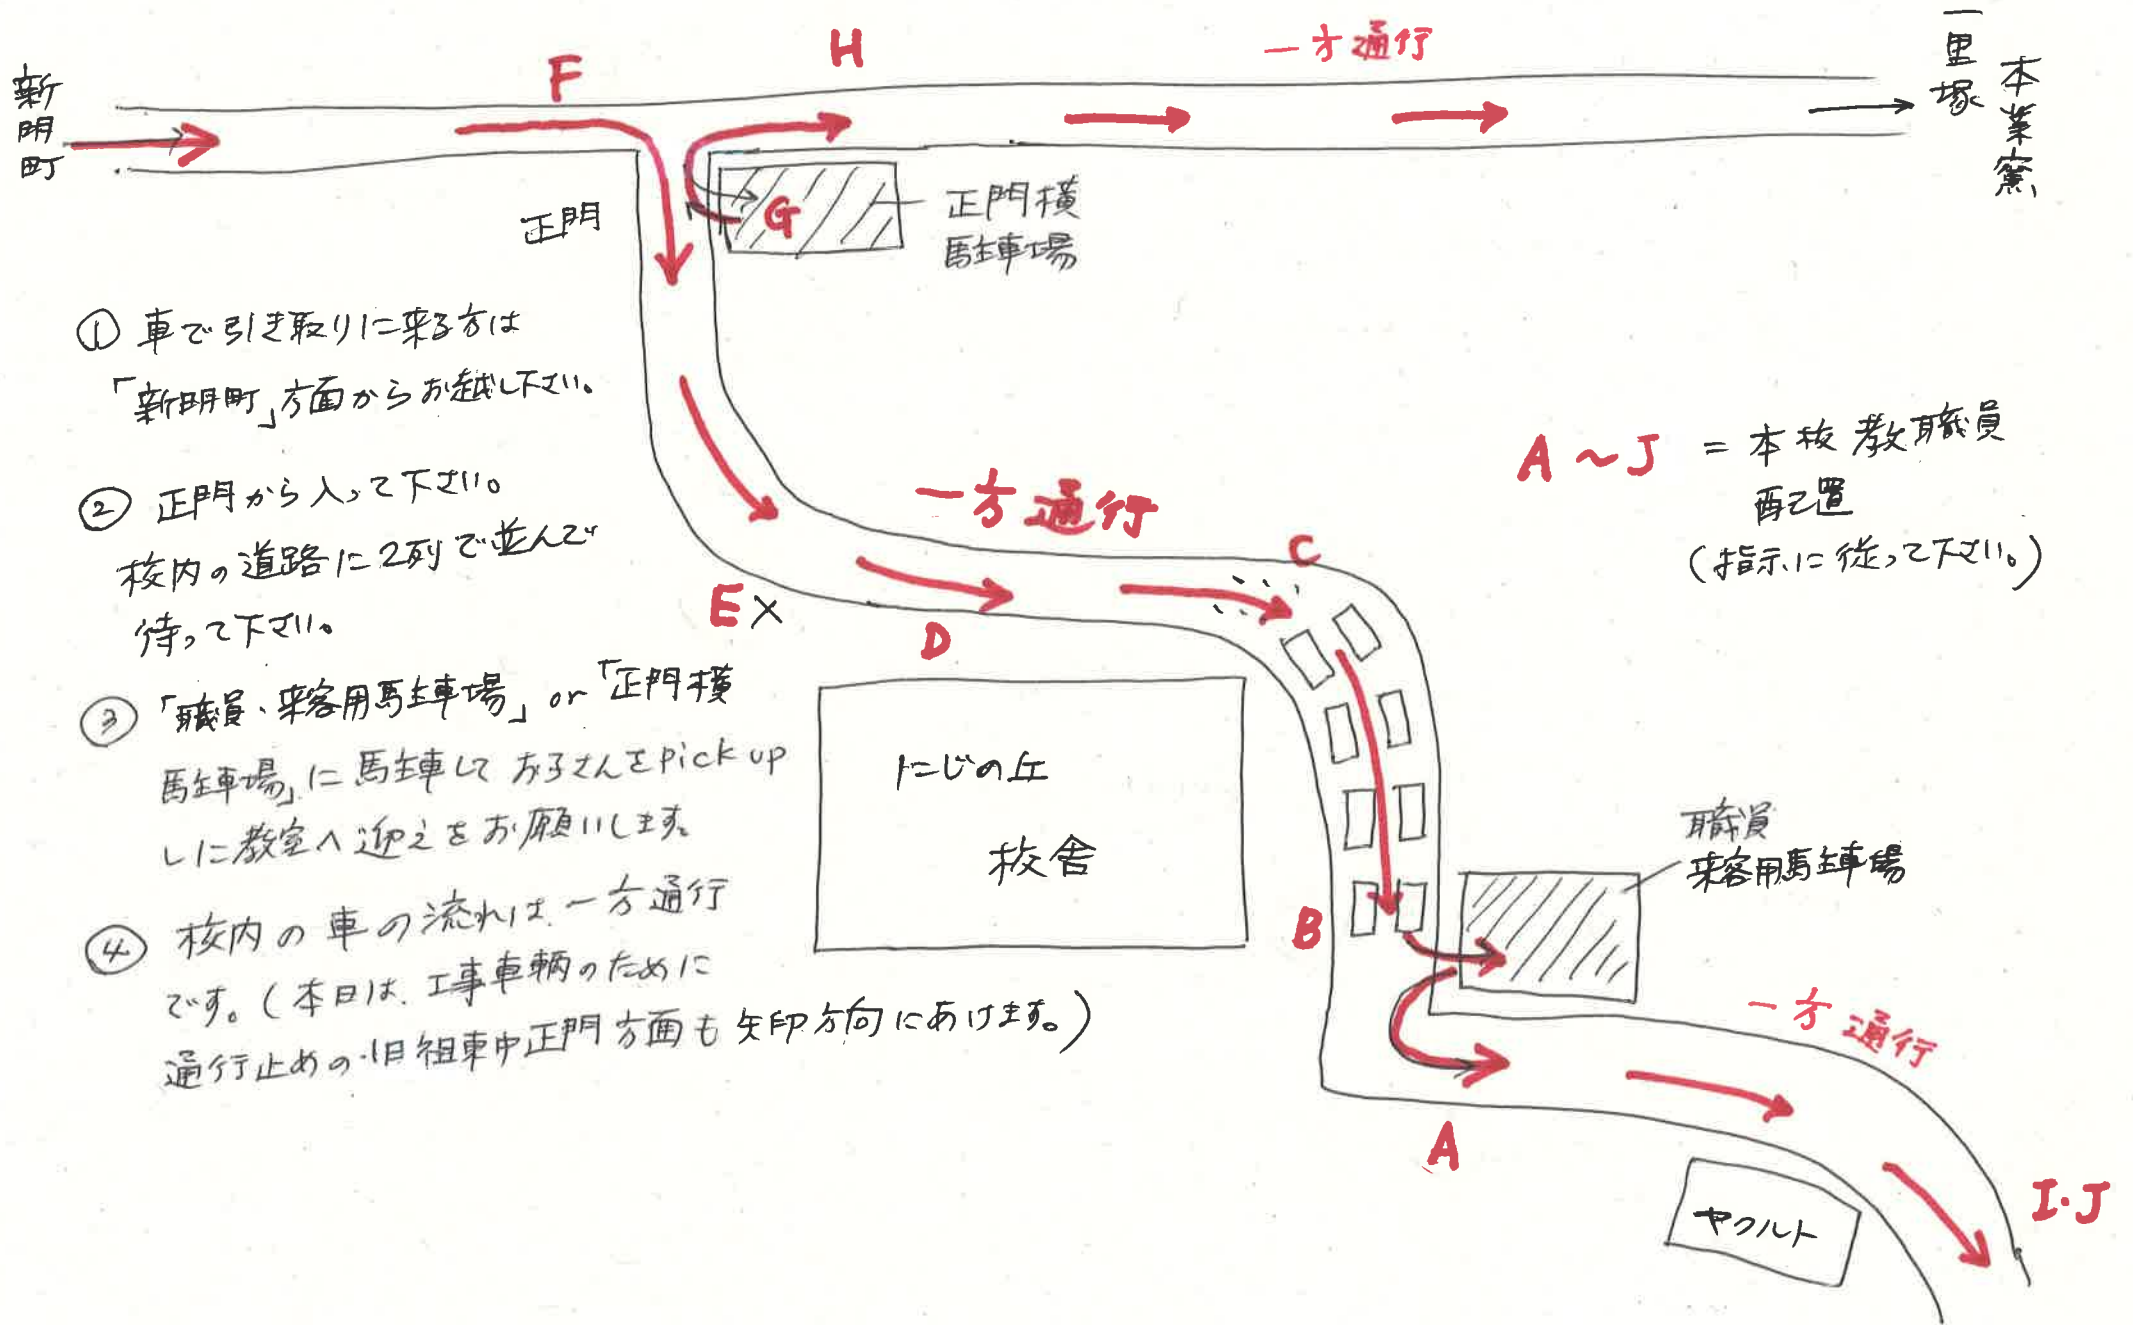 F
H
一方通行
新明町
一里塚
本業窯
正門
G
正門横
駐車場
① 車で引き取りに来る方は
「新明町」方面からお越し下さい。
② 正門から入って下さい。
校内の道路に2列で並んで
待って下さい。
③ 「職員・来客用駐車場」or「正門横
駐車場」に駐車して お子さんをpick up
しに教室へ迎えをお願いします。
④ 校内の車の流れは、一方通行
です。(本日は、工事車輌のために
通行止めの旧祖東中正門方面も矢印方向にあけます。)
一方通行
A〜J = 本校教職員
配置
(指示に従って下さい。)
C
E
D
にじの丘
校舎
B
職員
来客用駐車場
一方通行
A
I・J
ヤクルト